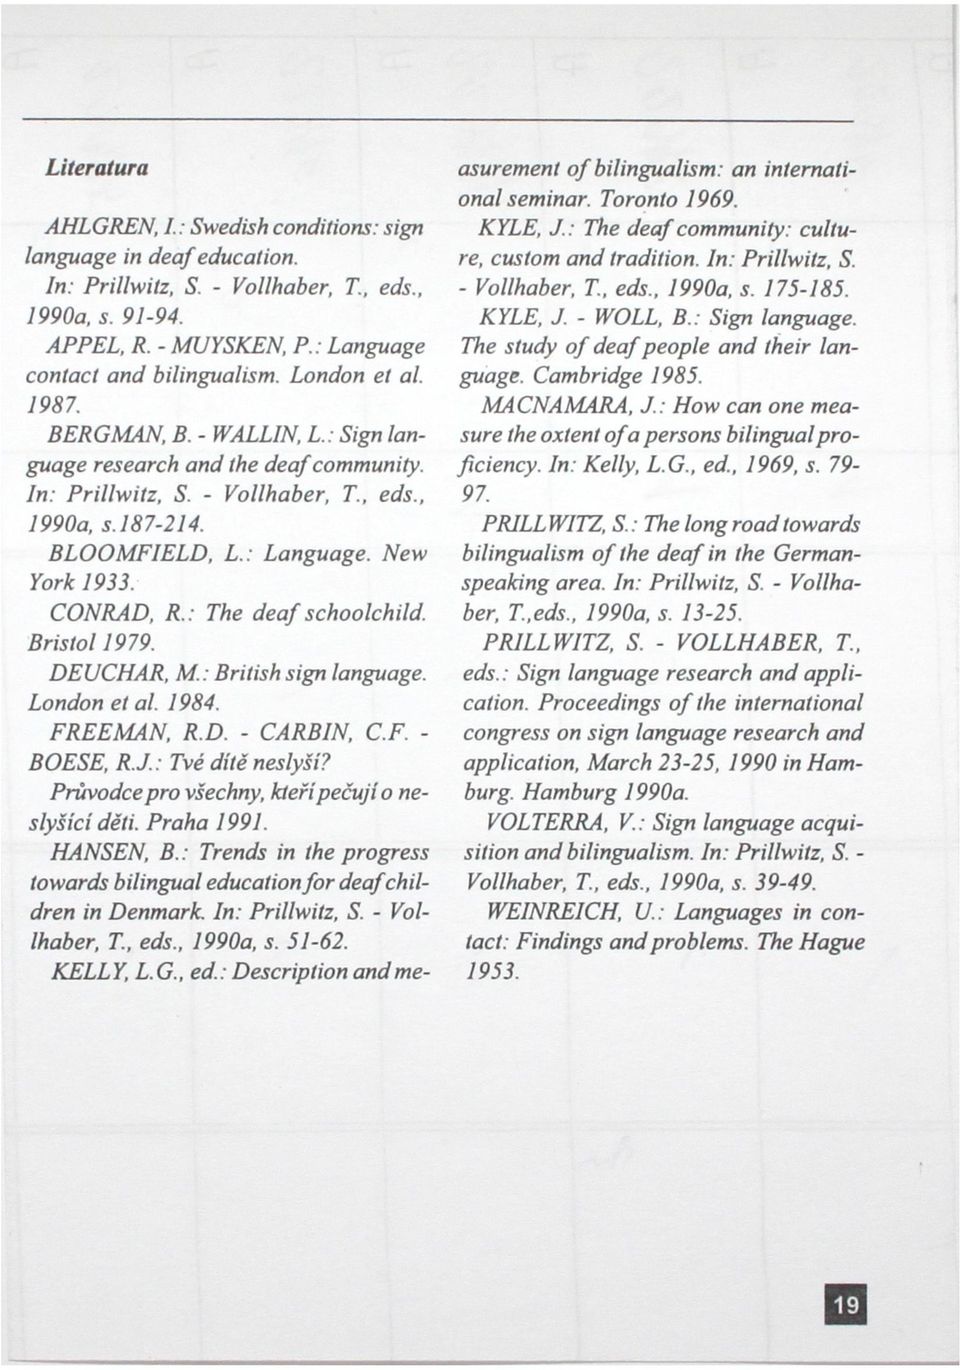 Literatura
AHLGREN, I.: Swedish conditions: sign
language in deaf education.
In: Prillwitz, S. - Vollhaber, T., eds.,
1990a, s. 91-94.
APPEL, R. - MUYSKEN, P.: Language
contact and bilingualism. London et al.
1987.
BERGMAN, B. - WALLIN, L.: Sign lan-
guage research and the deaf community.
In: Prillwitz, S. - Vollhaber, T., eds.,
1990a, s.187-214.
BLOOMFIELD, L.: Language. New
York 1933.
CONRAD, R.: The deaf schoolchild.
Bristol 1979.
DEUCHAR, M.: British sign language.
London et al. 1984.
FREEMAN, R.D. - CARBIN, C.F. -
BOESE, R.J.: Tvé dítě neslyší?
Průvodce pro všechny, kteří pečují o ne-
slyšící děti. Praha 1991.
HANSEN, B.: Trends in the progress
towards bilingual education for deaf chil-
dren in Denmark. In: Prillwitz, S. - Vol-
lhaber, T., eds., 1990a, s. 51-62.
KELLY, L.G., ed.: Description and me-
asurement of bilingualism: an internati-
onal seminar. Toronto 1969.
KYLE, J.: The deaf community: cultu-
re, custom and tradition. In: Prillwitz, S.
- Vollhaber, T., eds., 1990a, s. 175-185.
KYLE, J. - WOLL, B.: Sign language.
The study of deaf people and their lan-
guage. Cambridge 1985.
MACNAMARA, J.: How can one mea-
sure the oxtent of a persons bilingual pro-
ficiency. In: Kelly, L.G., ed., 1969, s. 79-
97.
PRILLWITZ, S.: The long road towards
bilingualism of the deaf in the German-
speaking area. In: Prillwitz, S. - Vollha-
ber, T.,eds., 1990a, s. 13-25.
PRILLWITZ, S. - VOLLHABER, T.,
eds.: Sign language research and appli-
cation. Proceedings of the international
congress on sign language research and
application, March 23-25, 1990 in Ham-
burg. Hamburg 1990a.
VOLTERRA, V.: Sign language acqui-
sition and bilingualism. In: Prillwitz, S. -
Vollhaber, T., eds., 1990a, s. 39-49.
WEINREICH, U.: Languages in con-
tact: Findings and problems. The Hague
1953.
19